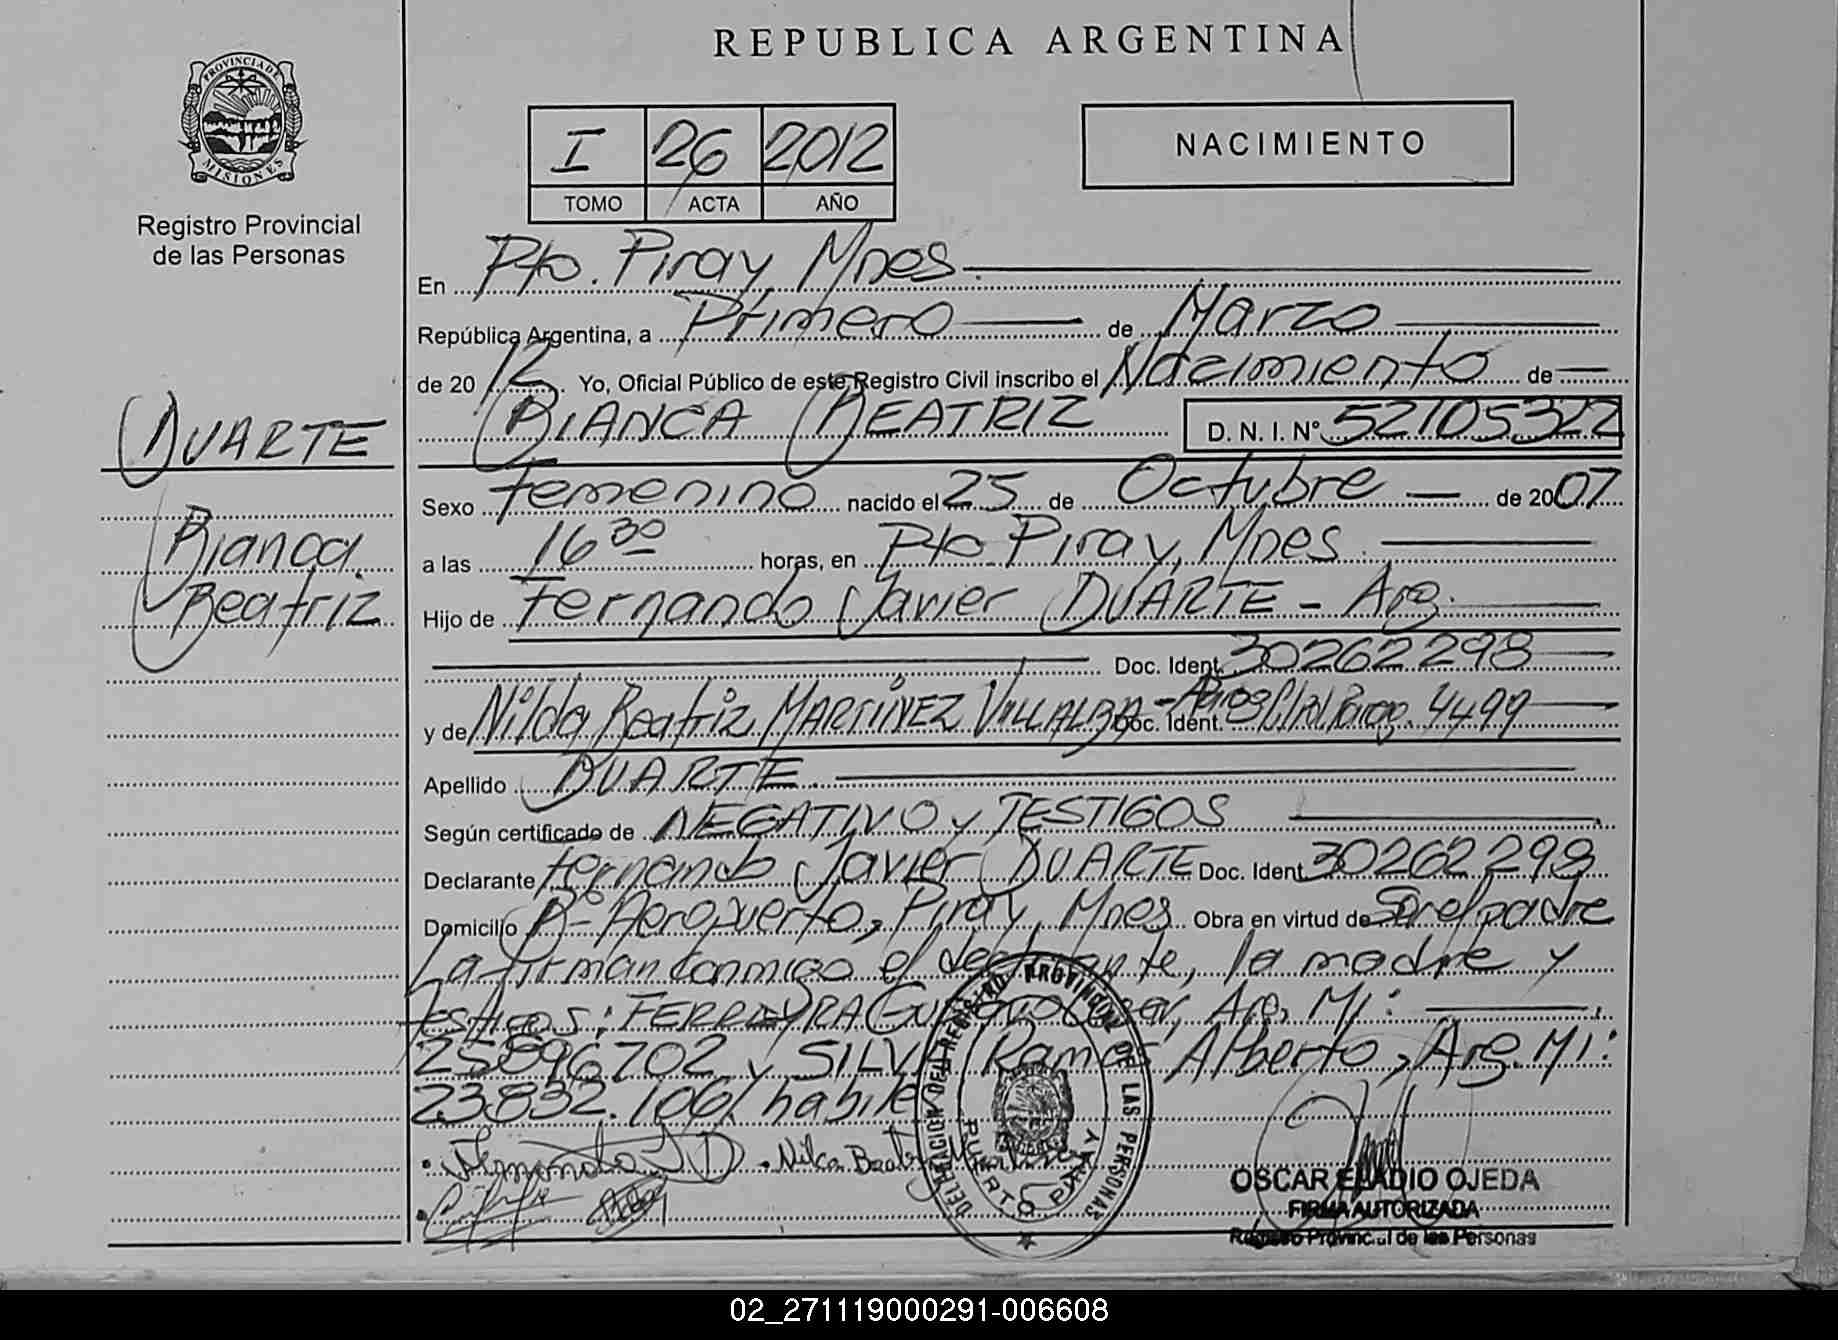 REPUBLICA ARGENTINA
PROVINCIA DE
MISIONES
Registro Provincial
de las Personas
I 26 2012
TOMO ACTA AÑO
NACIMIENTO
En Pto. Piray, Mnes.
República Argentina, a Primero de Marzo
de 2012. Yo, Oficial Público de este Registro Civil inscribo el Nacimiento de
BIANCA BEATRIZ D. N. I. Nº 52105322
DUARTE
Bianca
Beatriz
Sexo Femenino nacido el 25 de Octubre de 2007
a las 16 30 horas, en Pto Piray, Mnes.
Hijo de Fernando Javier DUARTE - Arg.
Doc. Ident. 30262298
y de Nilda Beatriz MARTÍNEZ VILLALBA - Doc. Ident. 4499
Apellido DUARTE.
Según certificado de NEGATIVO y TESTIGOS
Declarante Fernando Javier DUARTE Doc. Ident. 30262298
Domicilio Bº Aeropuerto, Piray, Mnes. Obra en virtud de Ser el padre
La firman conmigo el declarante, la madre y
testigos: FERREYRA Gustavo Cesar, Arg. MI:
25896702 y SILVA Ramon Alberto, Arg. MI:
23.832.166, habiles
Fernando J D . Nilda Beatriz Martinez
DELEGACION DEL REGISTRO PROVINCIAL DE LAS PERSONAS
PUERTO PIRAY
OSCAR ELADIO OJEDA
FIRMA AUTORIZADA
Registro Provincial de las Personas
02_271119000291-006608